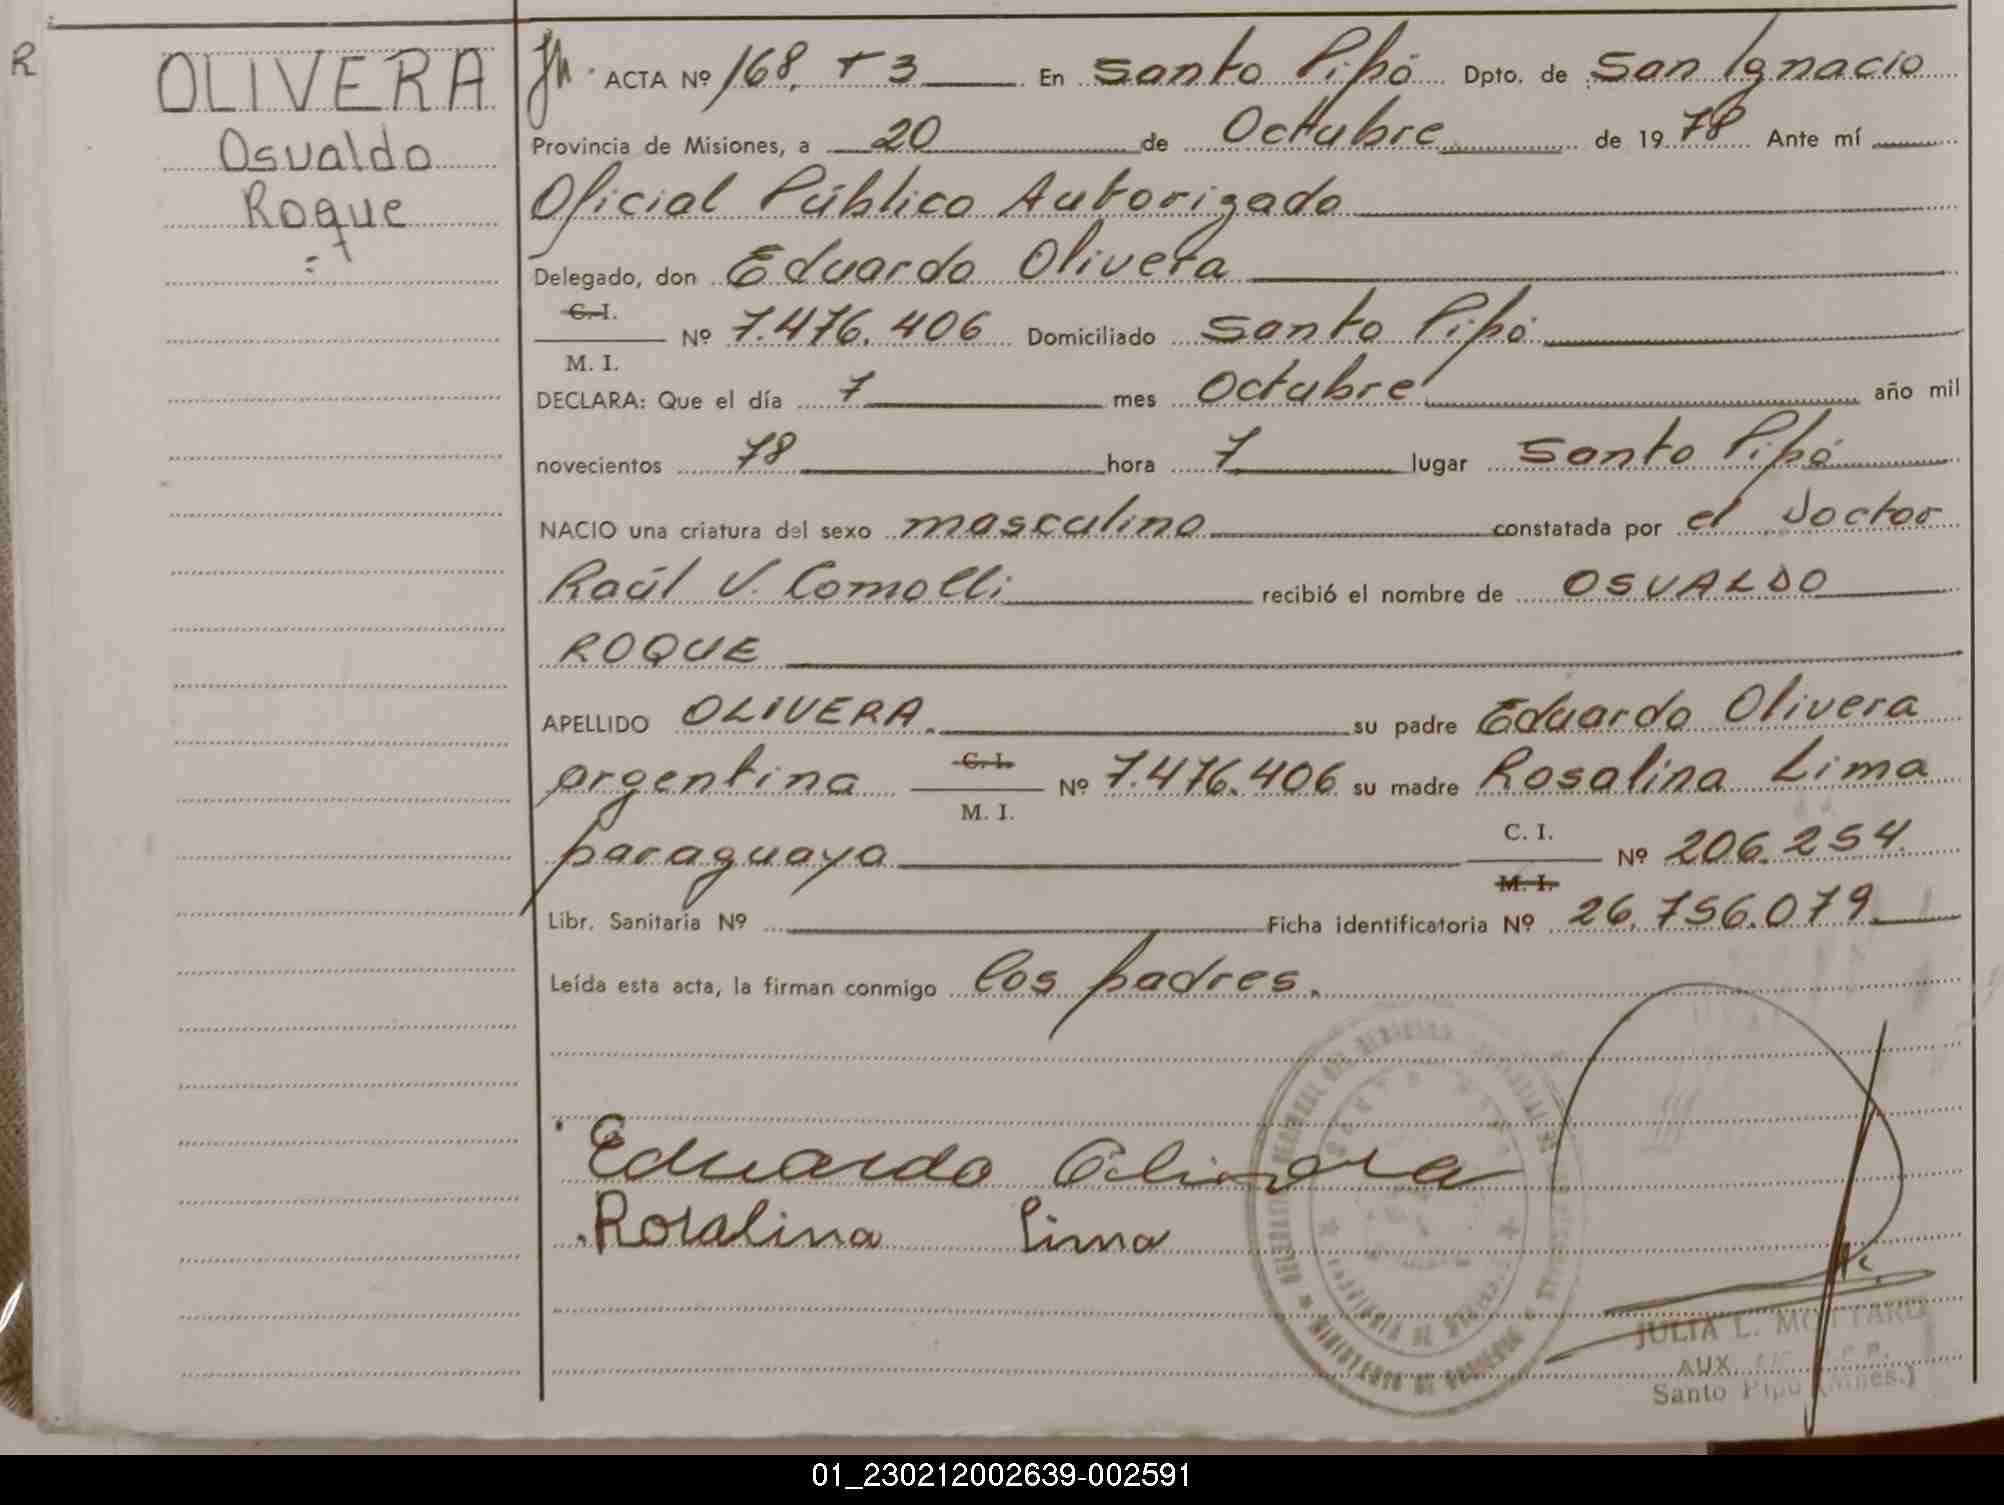 R
OLIVERA
Osvaldo
Roque
ACTA Nº 168, T 3 En Santo Pipó Dpto. de San Ignacio
Provincia de Misiones, a 20 de Octubre de 1978 Ante mí
Oficial Público Autorizado
Delegado, don Eduardo Olivera
C. I.
Nº 7.476.406 Domiciliado Santo Pipó
M. I.
DECLARA: Que el día 7 mes Octubre año mil
novecientos 78 hora 7 lugar Santo Pipó
NACIO una criatura del sexo masculino constatada por el doctor
Raúl V. Comolli recibió el nombre de OSVALDO
ROQUE
APELLIDO OLIVERA. su padre Eduardo Olivera
argentina C. I. Nº 7.476.406 su madre Rosalina Lima
M. I.
paraguaya C. I. Nº 206.254.
M. I.
Libr. Sanitaria Nº Ficha identificatoria Nº 26.756.079
Leída esta acta, la firman conmigo los padres.
Eduardo Olivera
Rosalina Lima
JULIA L. MOTTARD
AUX.
Santo Pipó (Mnes.)
01_230212002639-002591